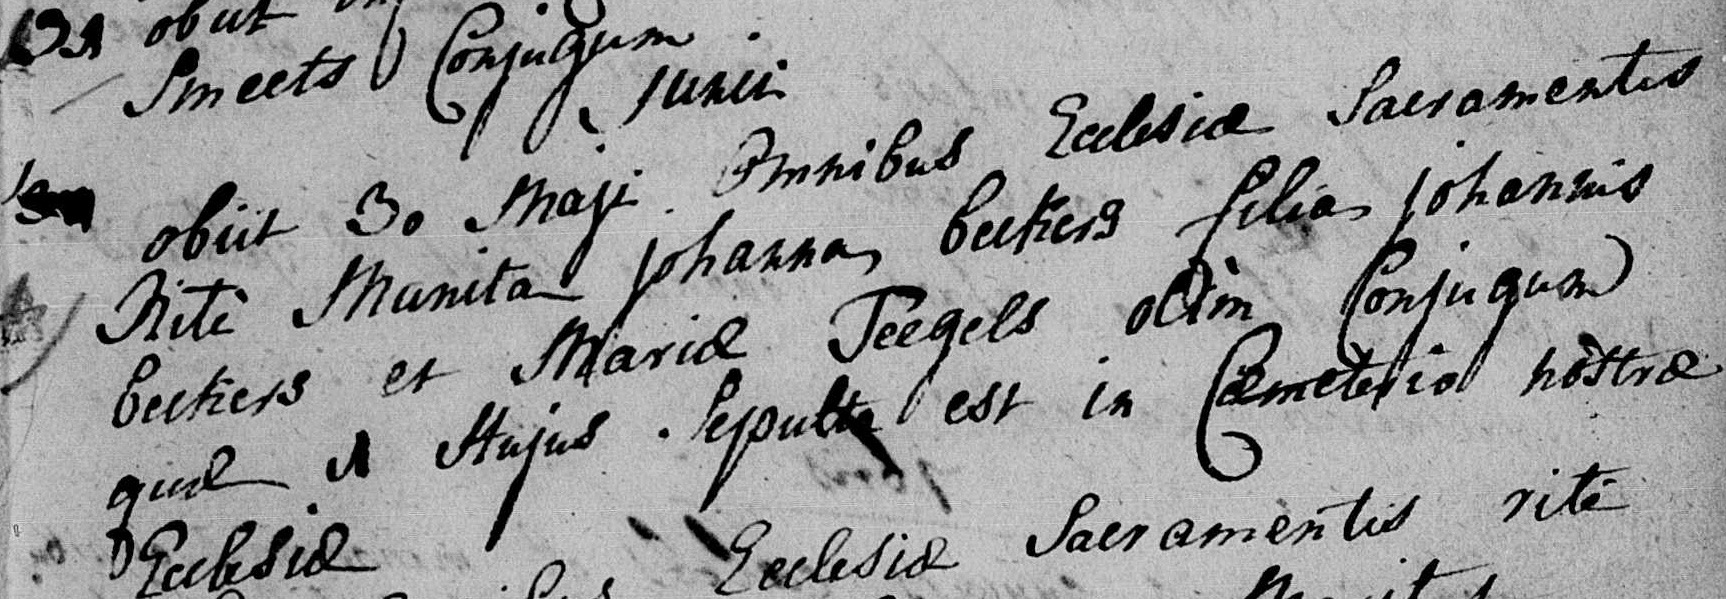 31 obiit
Smeets Conjugum.
Junii
obiit 30 Maji omnibus Ecclesiæ Sacramentis
Ritè Munita johanna beckers filia johannis
beckers et Mariæ Teegels olim Conjugum
quæ 1 Hujus Sepulta est in Cæmeterio nostræ
Ecclesiæ
Ecclesiæ Sacramentis ritè